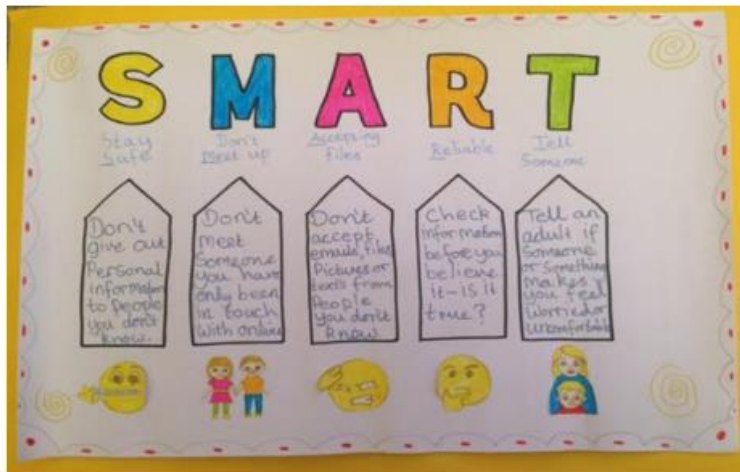 S M A R T
Stay
Safe
Don't
Meet up
Accepting
Files
Reliable
Tell
Someone
Don't
give out
Personal
information
to People
you don't
know.
Don't
meet
Someone
you have
only been
in touch
with online
Don't
accept
emails, files,
Pictures or
texts from
People
you don't
know
Check
information
before you
believe
it - is it
true?
Tell an
adult if
Someone
or something
makes
you feel
worried or
uncomfortable